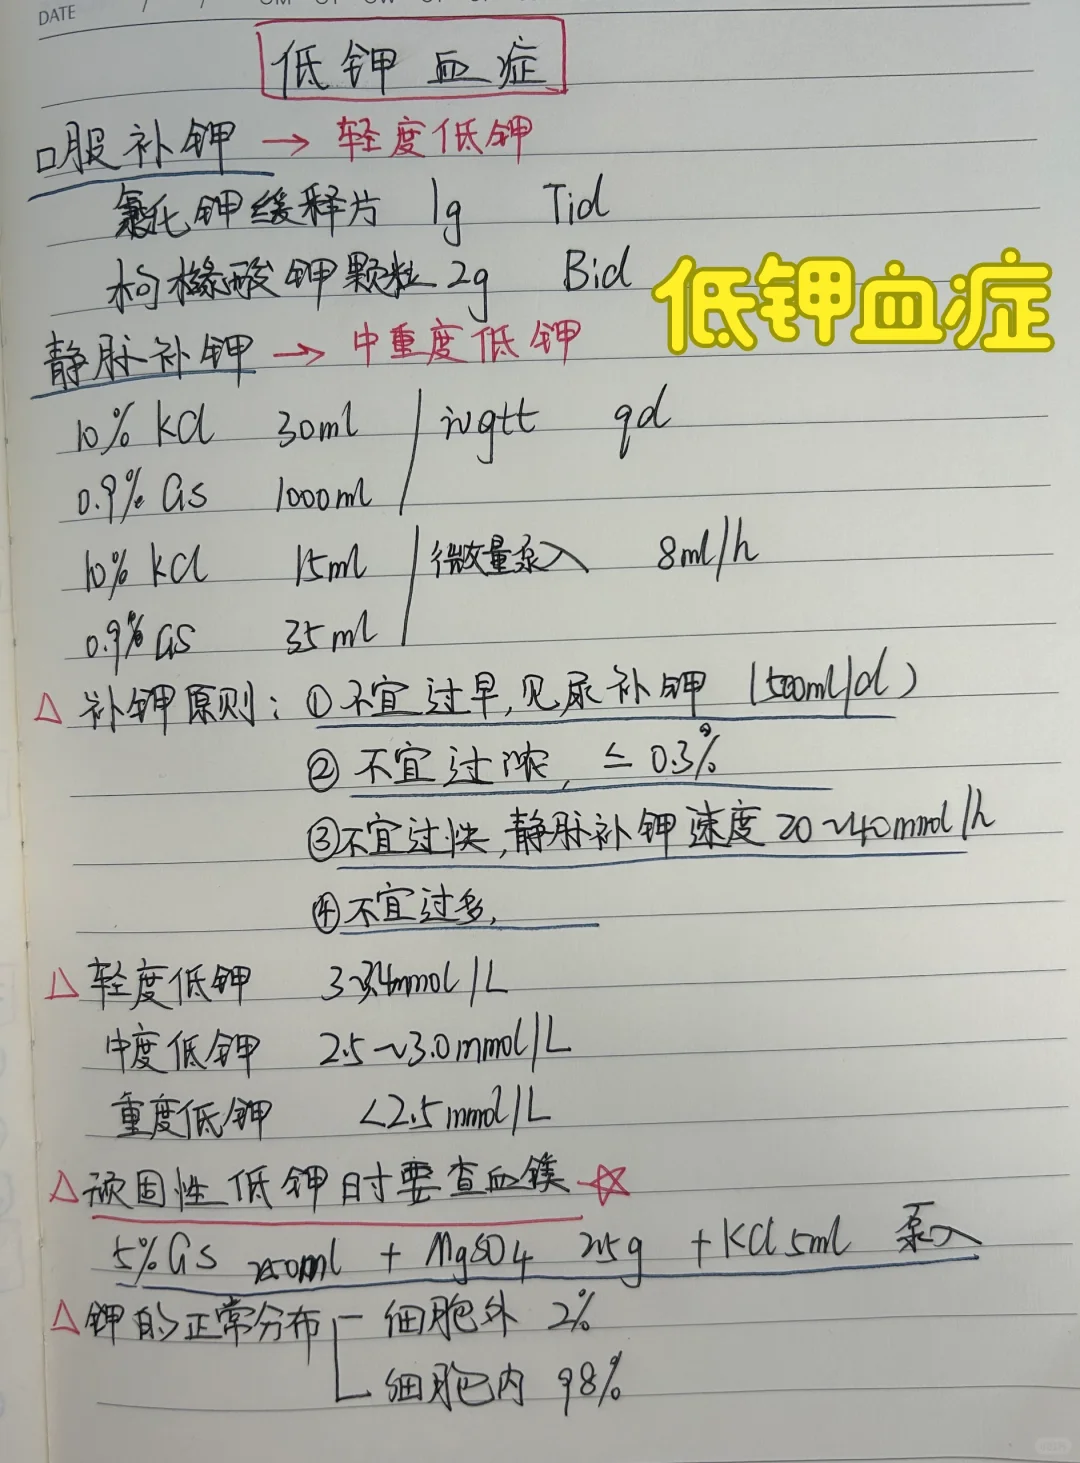 DATE / /
低钾血症
口服补钾 → 轻度低钾
氯化钾缓释片 1g Tid
枸橼酸钾颗粒 2g Bid
低钾血症
静脉补钾 → 中重度低钾
10% KCl 30ml / ivgtt qd
0.9% GS 1000ml
10% KCl 15ml / 微量泵入 8ml/h
0.9% GS 35ml
△ 补钾原则: ① 不宜过早,见尿补钾 (500ml/d)
② 不宜过浓, ≤ 0.3%
③ 不宜过快,静脉补钾速度 20~40mmol/h
④ 不宜过多,
△ 轻度低钾 3~3.4mmol/L
中度低钾 2.5~3.0mmol/L
重度低钾 <2.5mmol/L
△ 顽固性低钾时要查血镁 ☆
5% GS 250ml + MgSO4 2.5g + KCl 5ml 泵入
△ 钾的正常分布 细胞外 2%
细胞内 98%